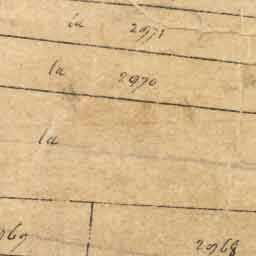 la 2971
la 2970
la
2968